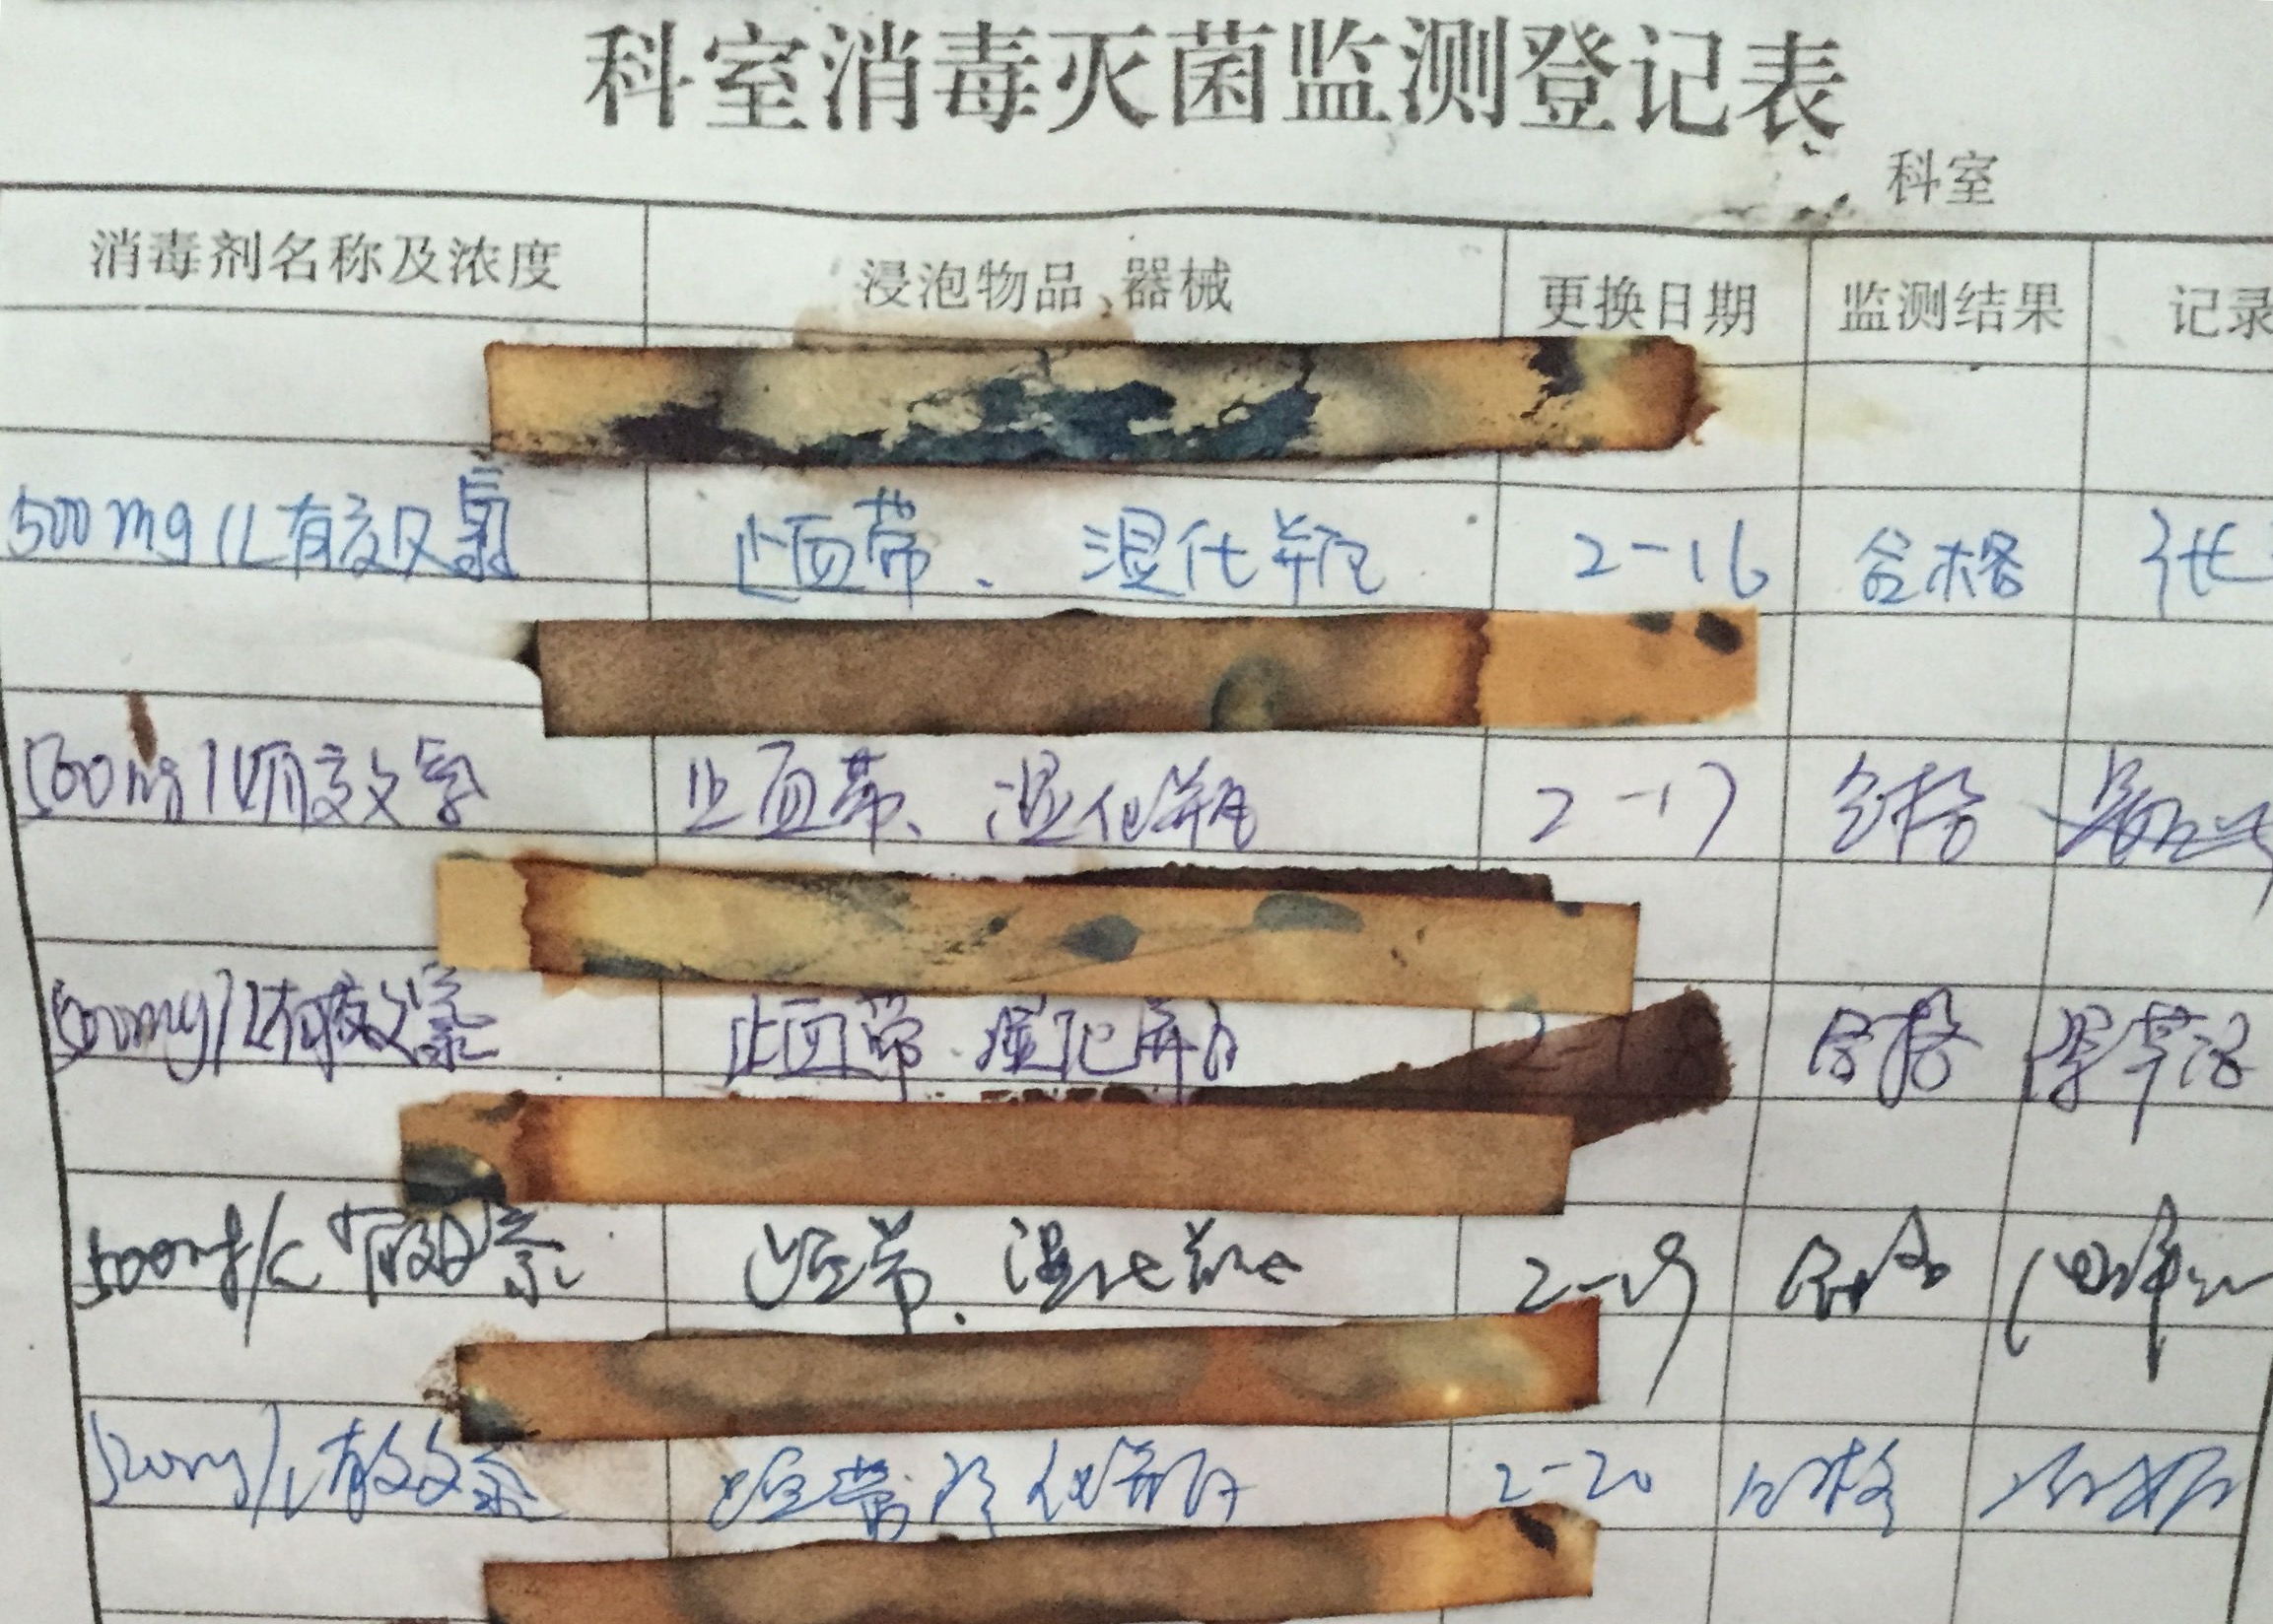 科室消毒灭菌监测登记表
科室
消毒剂名称及浓度 浸泡物品、器械 更换日期 监测结果 记录
500mg/L有效氯 止血带、湿化瓶 2-16 合格 张
500mg/L有效氯 止血带、湿化瓶 2-17 合格
500mg/L有效氯 止血带、湿化瓶 2-18 合格
500mg/L有效氯 止血带、湿化瓶 2-19 合格
500mg/L有效氯 止血带、湿化瓶 2-20 合格